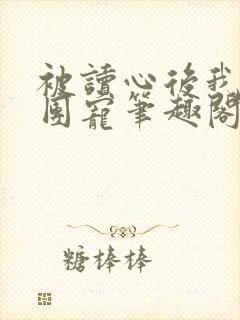 被讀心後我
團寵筆趣閣
糖棒棒